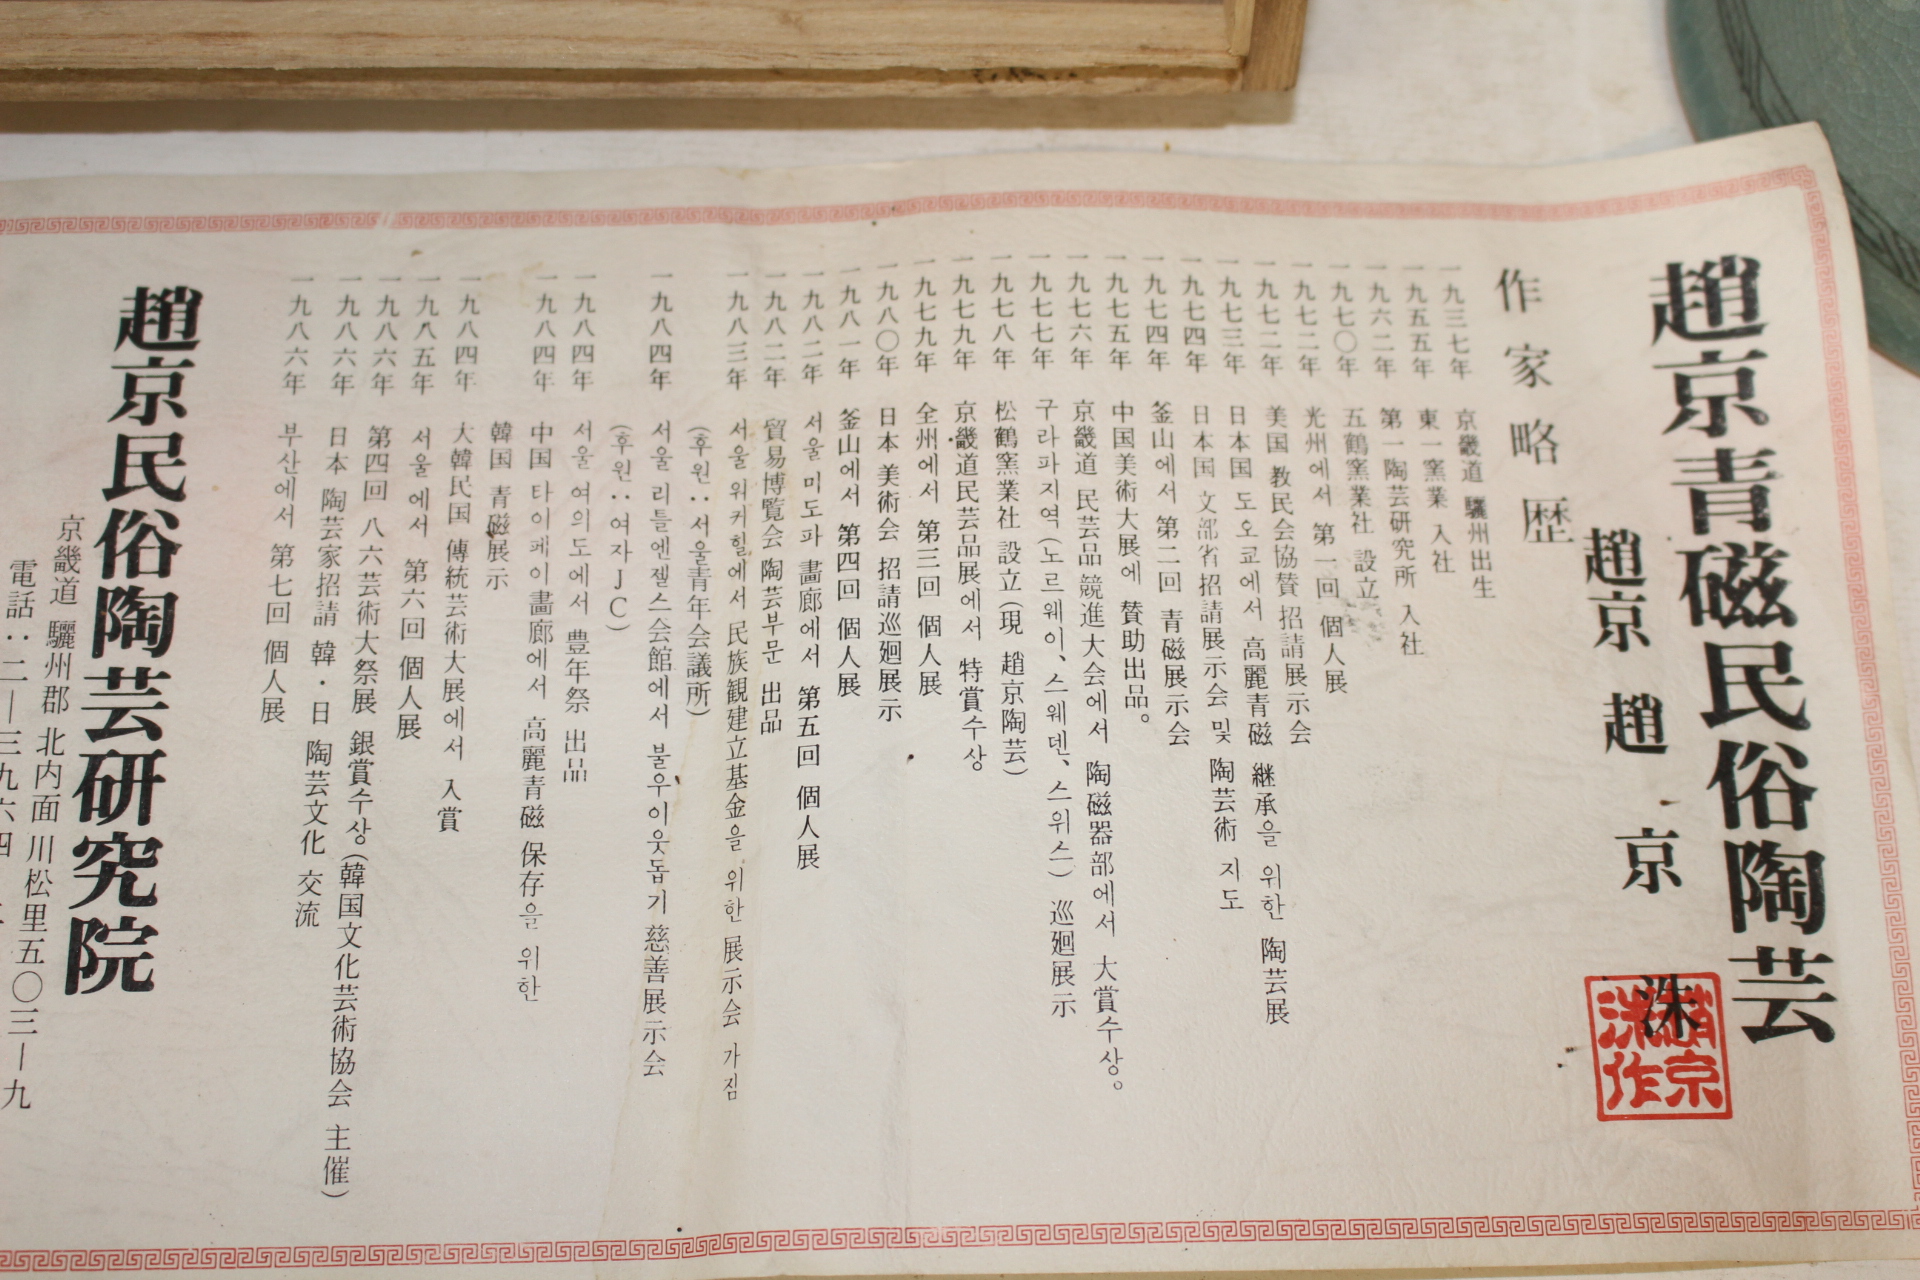 趙京青磁民俗陶芸
趙京 趙京洙
趙京
洙作
作家略歴
一九三七年 京畿道 驪州出生
一九五五年 東一窯業 入社
一九六二年 第一陶芸研究所 入社
一九七〇年 五鶴窯業社 設立
一九七二年 光州에서 第一回 個人展
一九七二年 美国 教民会協賛 招請展示会
一九七三年 日本国 도오쿄에서 高麗青磁 継承을 위한 陶芸展
一九七四年 日本国 文部省招請展示会 및 陶芸術 지도
一九七四年 釜山에서 第二回 青磁展示会
一九七五年 中国美術大展에 贊助出品。
一九七六年 京畿道 民芸品 競進大会에서 陶磁器部에서 大賞수상。
一九七七年 구라파지역(노르웨이、스웨덴、스위스) 巡廻展示
一九七八年 松鶴窯業社 設立(現 趙京陶芸)
一九七九年 京畿道民芸品展에서 特賞수상
一九七九年 全州에서 第三回 個人展
一九八〇年 日本 美術会 招請巡廻展示
一九八一年 釜山에서 第四回 個人展
一九八二年 서울 미도파 畵廊에서 第五回 個人展
一九八二年 貿易博覧会 陶芸부문 出品
一九八三年 서울 워커힐에서 民族観建立基金을 위한 展示会 가짐
(후원:서울青年会議所)
一九八四年 서울 리틀엔젤스会館에서 불우이웃돕기 慈善展示会
(후원:여자JC)
一九八四年 서울 여의도에서 豊年祭 出品
一九八四年 中国 타이페이畵廊에서 高麗青磁 保存을 위한
韓国 青磁展示
一九八四年 大韓民国 傳統芸術大展에서 入賞
一九八五年 서울에서 第六回 個人展
一九八六年 第四回 八六芸術大祭展 銀賞수상(韓国文化芸術協会 主催)
一九八六年 日本 陶芸家招請 韓・日 陶芸文化 交流
一九八六年 부산에서 第七回 個人展
趙京民俗陶芸研究院
京畿道 驪州郡 北内面 川松里五〇三ー九
電話:二ー三九六四